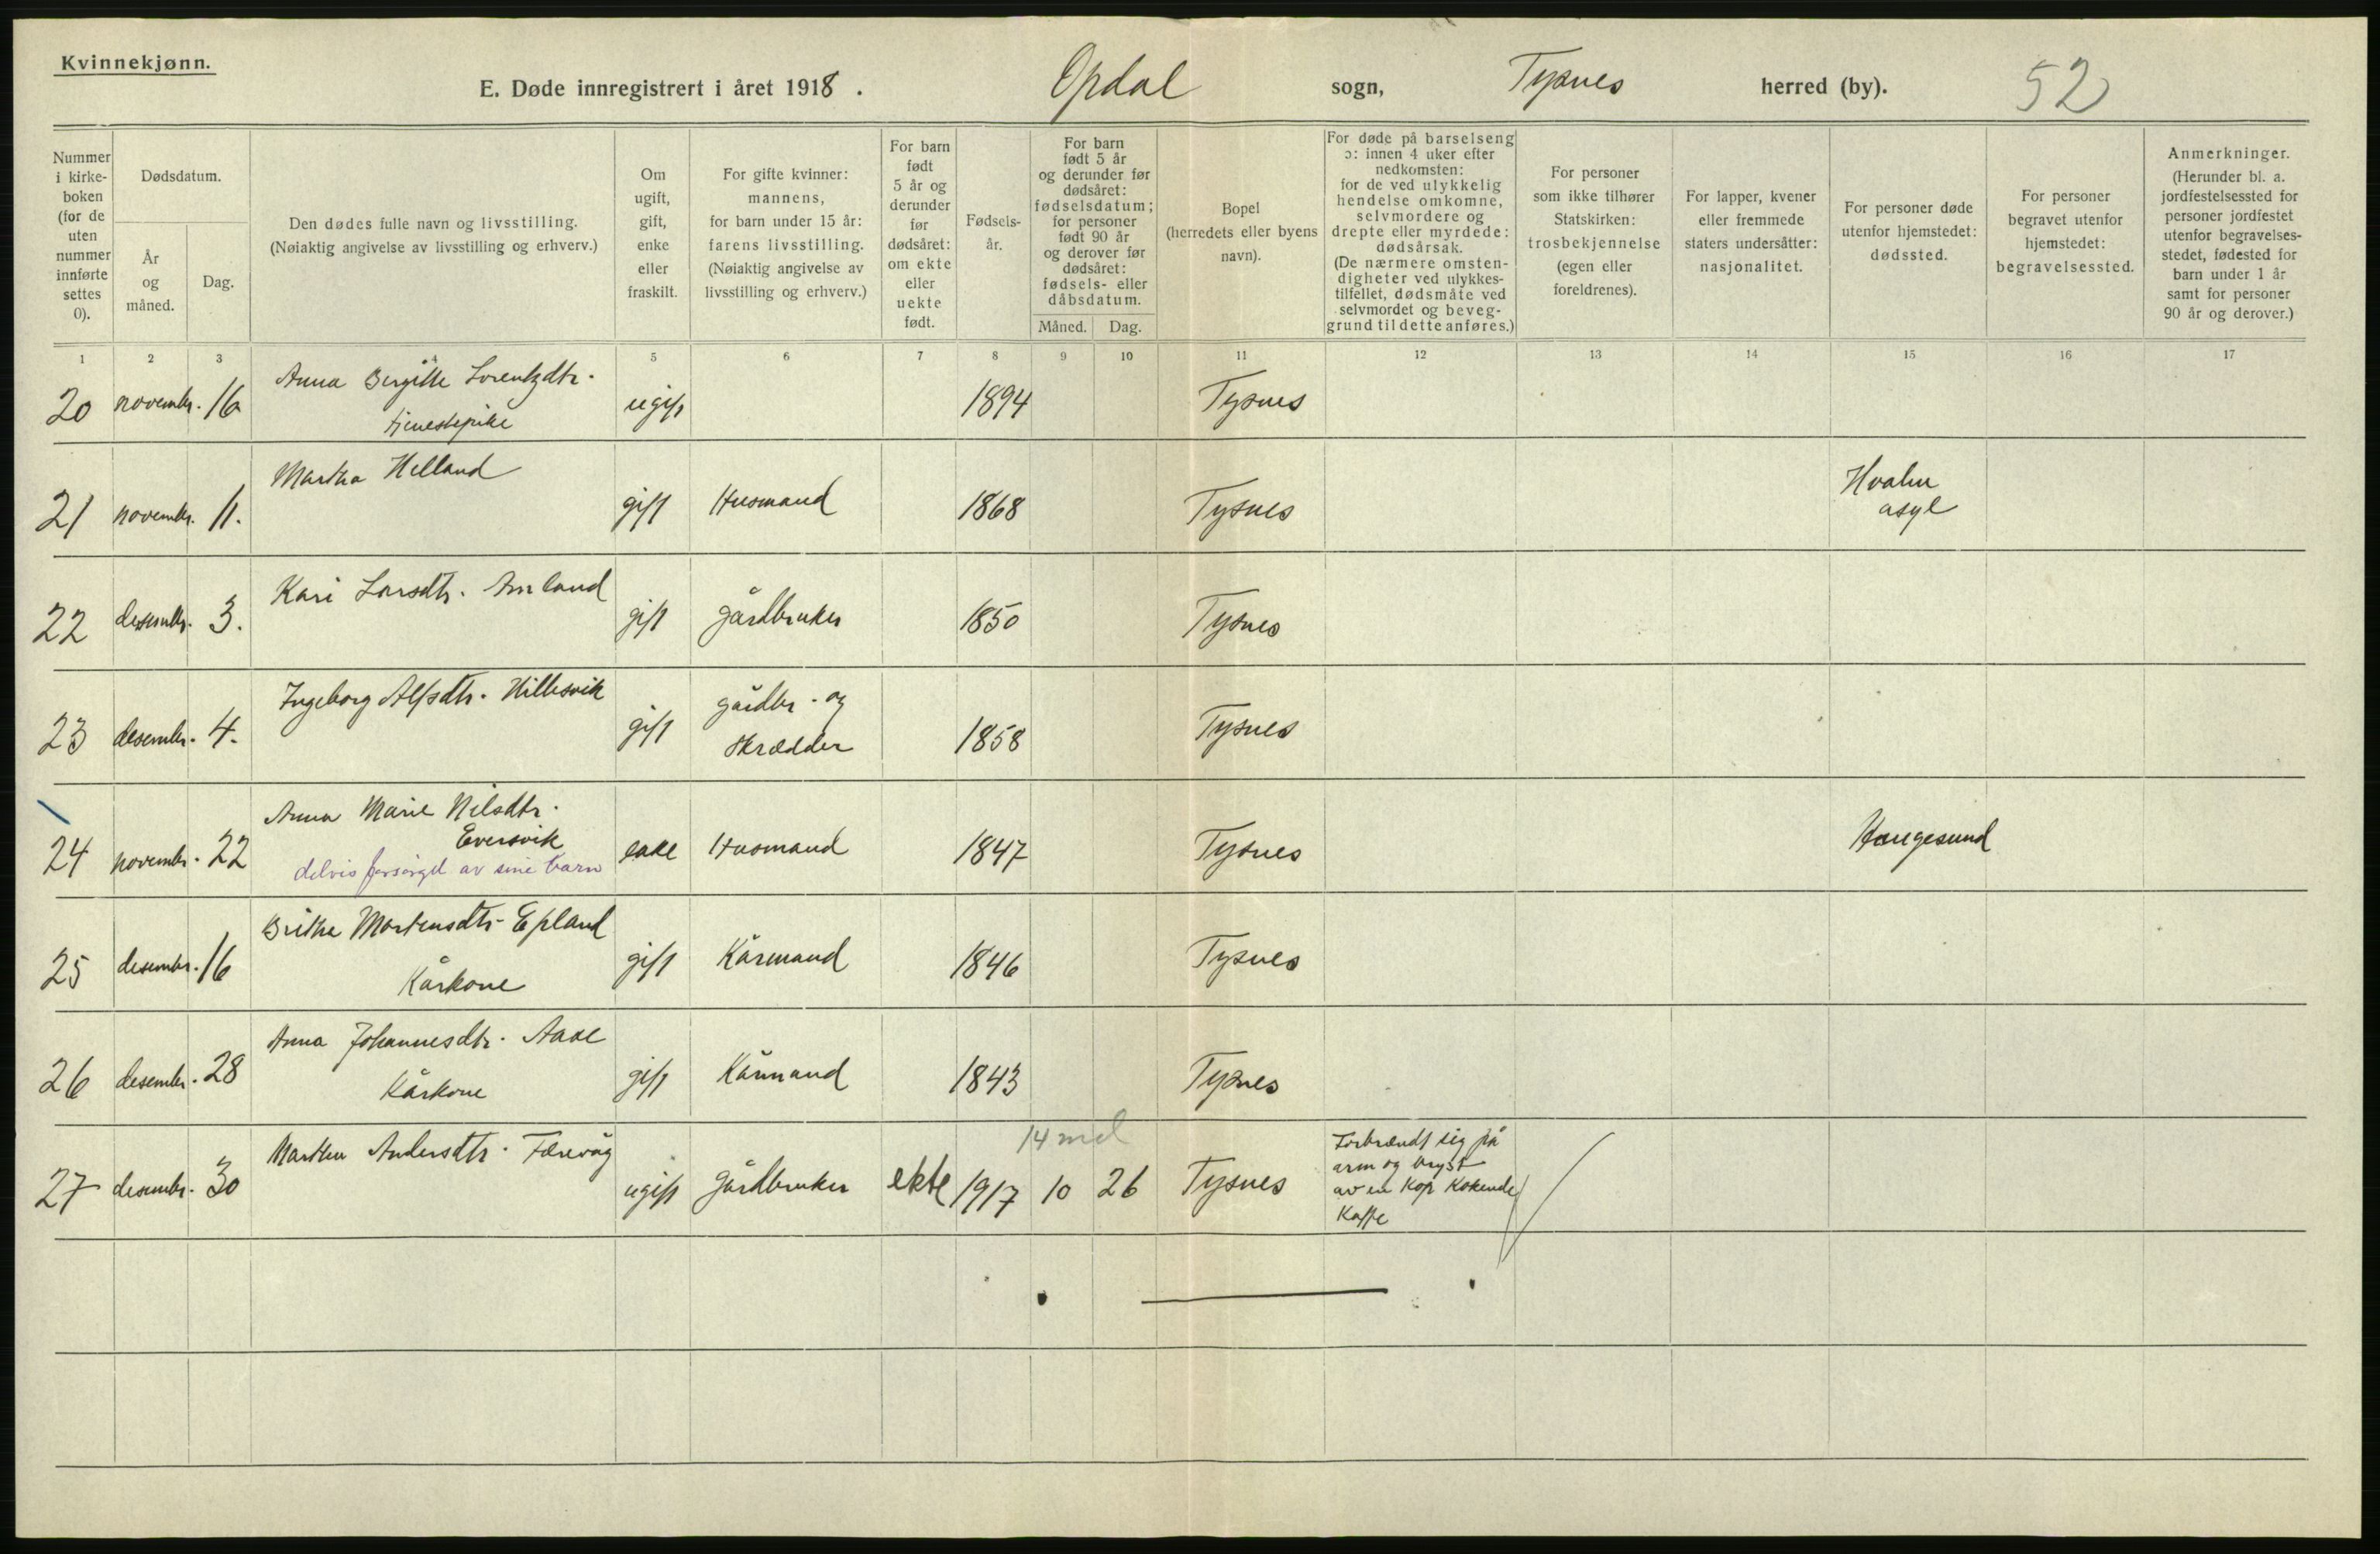 Kvinnekjønn.
E. Døde innregistrert i året 1918. Opdal sogn, Tysnes herred (by). 52
Nummer i kirke-boken (for de uten nummer innførte settes 0).
Dødsdatum.
År og måned.
Dag.
Den dødes fulle navn og livsstilling.
(Nøiaktig angivelse av livsstilling og erhverv.)
Om ugift, gift, enke eller fraskilt.
For gifte kvinner: mannens, for barn under 15 år: farens livsstilling. (Nøiaktig angivelse av livsstilling og erhverv.)
For barn født 5 år og derunder før dødsåret: om ekte eller uekte født.
Fødsels-år.
For barn født 5 år og derunder før dødsåret: fødselsdatum; for personer født 90 år og derover før dødsåret: fødsels- eller dåbsdatum.
Måned. Dag.
Bopel (herredets eller byens navn).
For døde på barselseng ɔ: innen 4 uker efter nedkomsten: for de ved ulykkelig hendelse omkomne, selvmordere og drepte eller myrdede: dødsårsak. (De nærmere omsten-digheter ved ulykkes-tilfellet, dødsmåte ved selvmordet og beveg-grund til dette anføres.)
For personer som ikke tilhører Statskirken: trosbekjennelse (egen eller foreldrenes).
For lapper, kvener eller fremmede staters undersåtter: nasjonalitet.
For personer døde utenfor hjemstedet: dødssted.
For personer begravet utenfor hjemstedet: begravelsessted.
Anmerkninger. (Herunder bl. a. jordfestelsessted for personer jordfestet utenfor begravelses-stedet, fødested for barn under 1 år samt for personer 90 år og derover.)
1 2 3 4 5 6 7 8 9 10 11 12 13 14 15 16 17
20 novembr. 16 Anna Birgitte Lorentzdtr. ugift 1894 Tysnes
tjenestepike
21 novembr. 11. Martha Helland gift Husmand 1868 Tysnes Hvalen
asyl
22 desembr. 3. Kari Larsdtr. Amland gift gårdbruker 1850 Tysnes
23 desembr. 4. Ingeborg Alfsdtr. Hillesvik gift gårdbr. og 1858 Tysnes
skrædder
24 novembr. 22 Anna Marie Nilsdtr. enke Husmand 1847 Tysnes Haugesund
Eversvik
delvis forsørget av sine barn
25 desembr. 16 Britha Mortensdtr. Epland gift Kårmand 1846 Tysnes
Kårkone
26 desembr. 28 Anna Johannesdtr. Aake gift Kårmand 1843 Tysnes
Kårkone
14 md
27 desembr. 30 Martha Andersdtr. Færevåg ugift gårdbruker ekte 1917 10 26 Tysnes Forbrændt sig på
arm og bryst
av en Kop Kokende
Kaffe